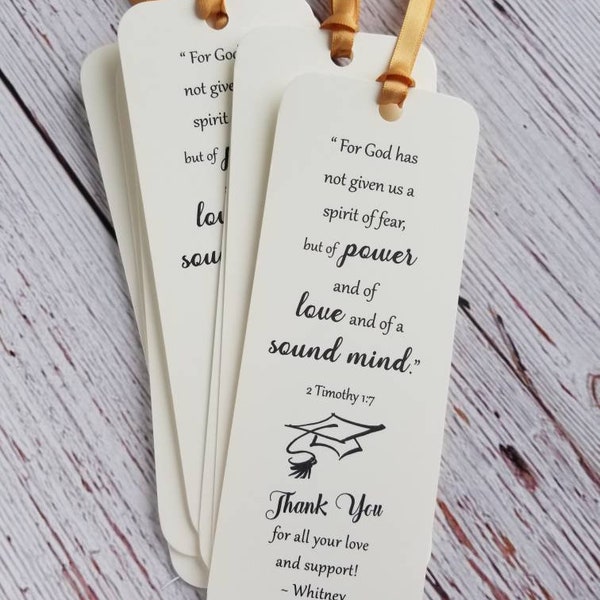 “ For God
not given u
spirit of
but of
lo
soun
“ For God has
not given us a
spirit of fear,
but of power
and of
love and of a
sound mind.”
2 Timothy 1:7
Thank You
for all your love
and support!
~ Whitney